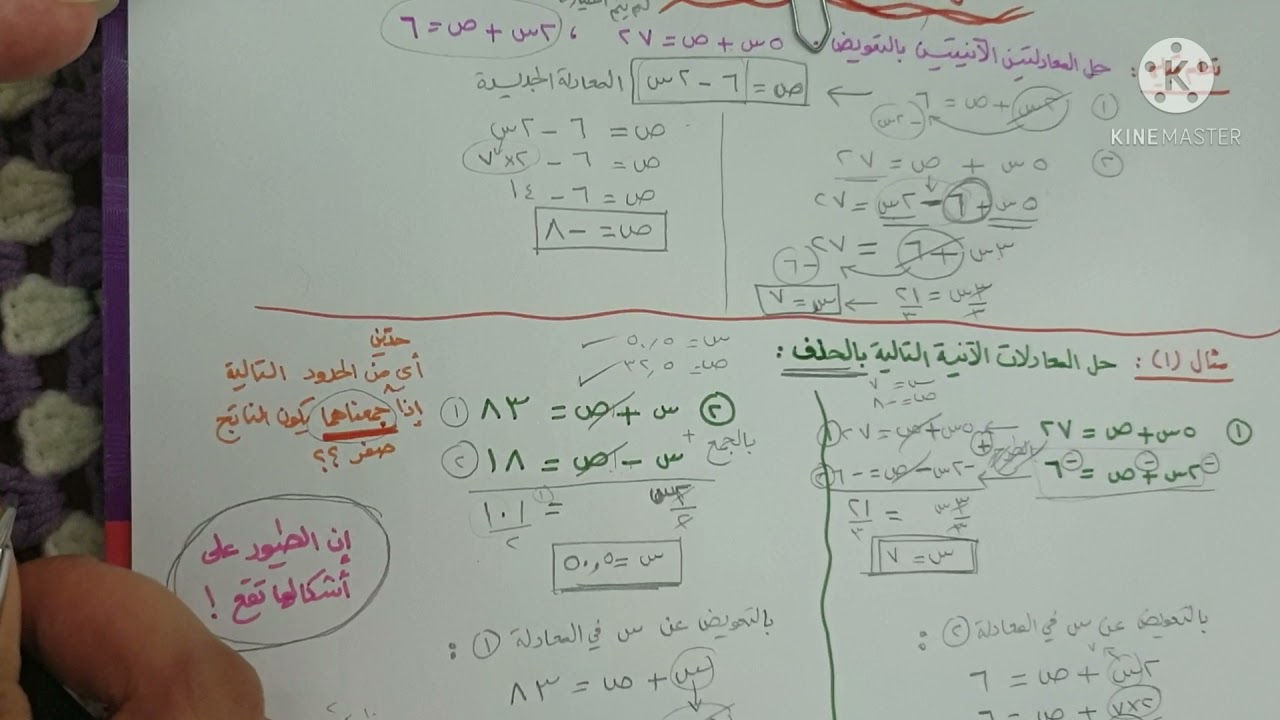 حل المعادلتين الآنيتين بالتعويض ٥س + ص = ٢٧ ، ٢س + ص = ٦
١ ٢س + ص = ٦ ← ص = ٦ - ٢س المعادلة الجديدة
-٢س
٢ ٥س + ص = ٢٧
٥س + ٦ - ٢س = ٢٧
٣س + ٦ = ٢٧
-٦
٣س/٣ = ٢١/٣ ← س = ٧
ص = ٦ - ٢س
ص = ٦ - ٢×٧
ص = ٦ - ١٤
ص = -٨
KINEMASTER
مثال (١): حل المعادلات الآنية التالية بالحذف:
س = ٧
ص = -٨
١ ٥س + ص = ٢٧ ← ٥س + ص = ٢٧ ١
٢س + ص = ٦ ← -٢س - ص = -٦ ٢
٣س/٣ = ٢١/٣
س = ٧
بالتعويض عن س في المعادلة ٢ :
٢س + ص = ٦
٢×٧ + ص = ٦
س = ٥٠,٥
ص = ٣٢,٥
٢ س + ص = ٨٣ ١
س - ص = ١٨ ٢
بالجمع +
٢س/٢ = ١٠١/٢
س = ٥٠,٥
بالتعويض عن س في المعادلة ١ :
س + ص = ٨٣
حدّين
أي من الحدود التالية
إذا جمعناهما يكون الناتج
صفر ؟؟
إن الطيور على
أشكالها تقع !